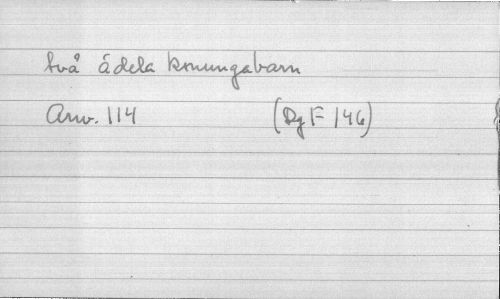 två ädela konungabarn
Arw. 114 (DgF 146)